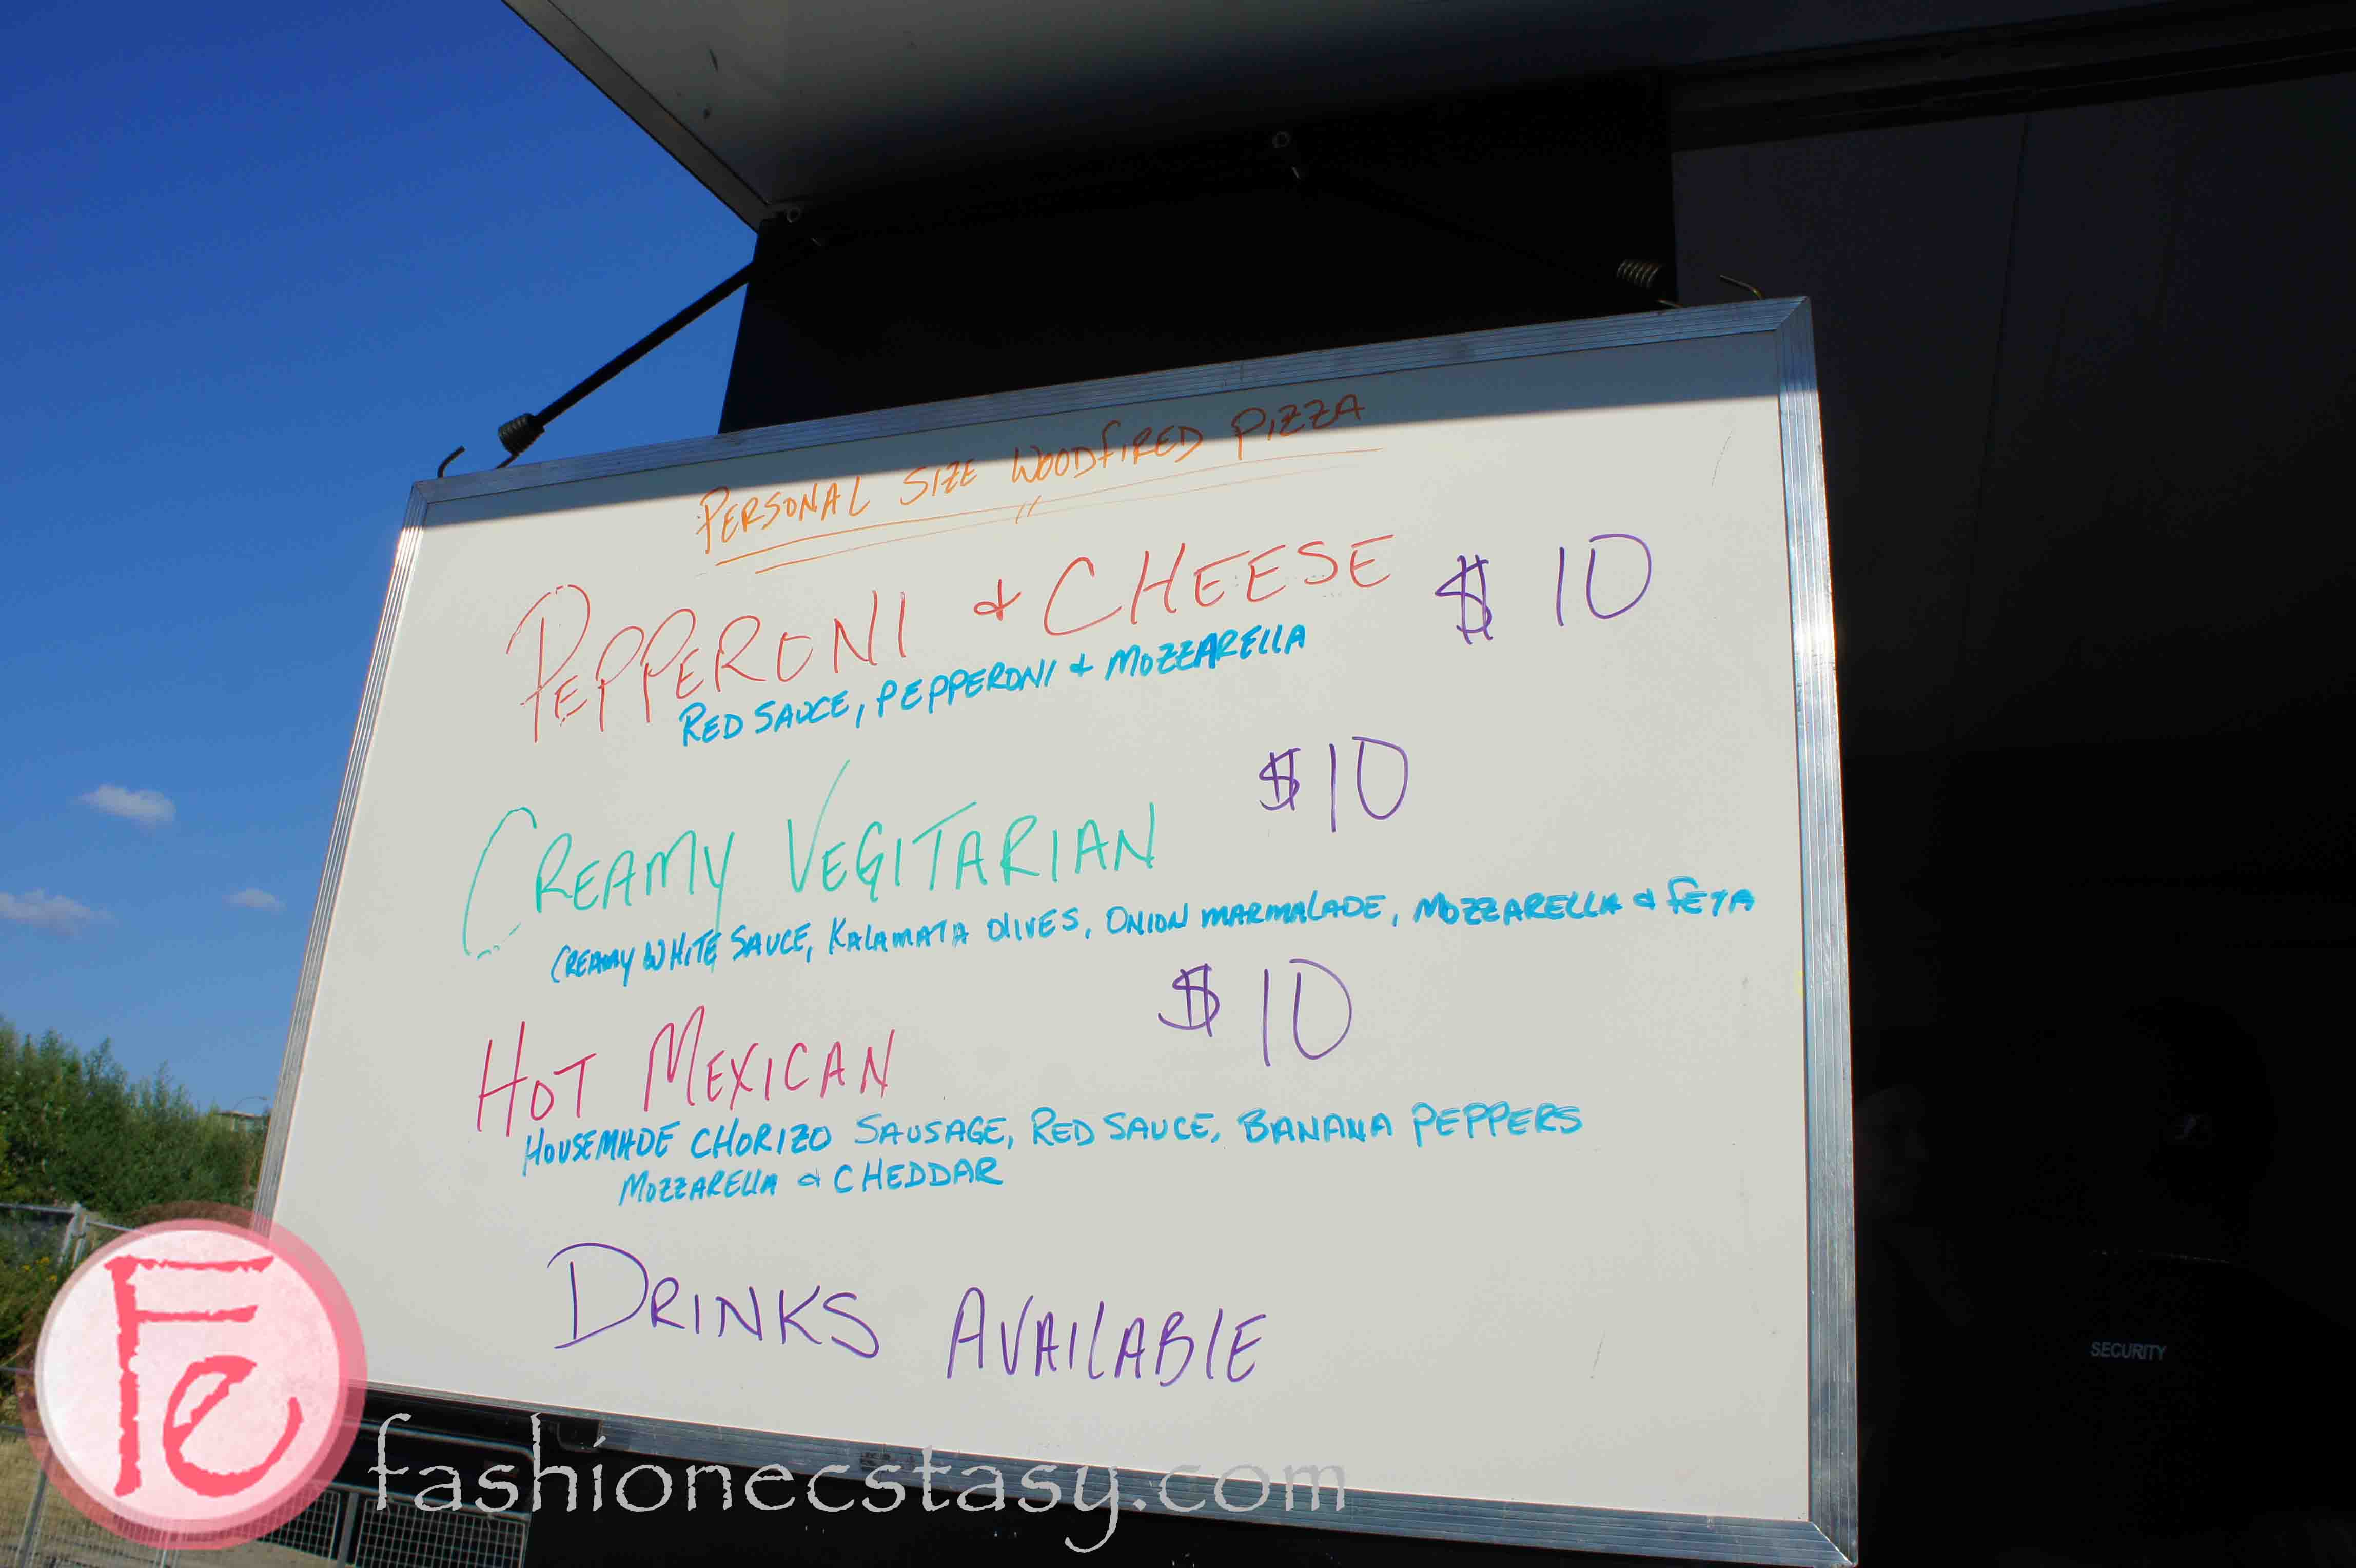 PERSONAL SIZE WOODFIRED PIZZA
PEPPERONI & CHEESE $10
RED SAUCE, PEPPERONI & MOZZARELLA
CREAMY VEGITARIAN $10
CREAMY WHITE SAUCE, KALAMATA OLIVES, ONION MARMALADE, MOZZARELLA & FETA
HOT MEXICAN $10
HOUSEMADE CHORIZO SAUSAGE, RED SAUCE, BANANA PEPPERS
MOZZARELLA & CHEDDAR
DRINKS AVAILABLE
SECURITY
Fe
fashionecstasy.com